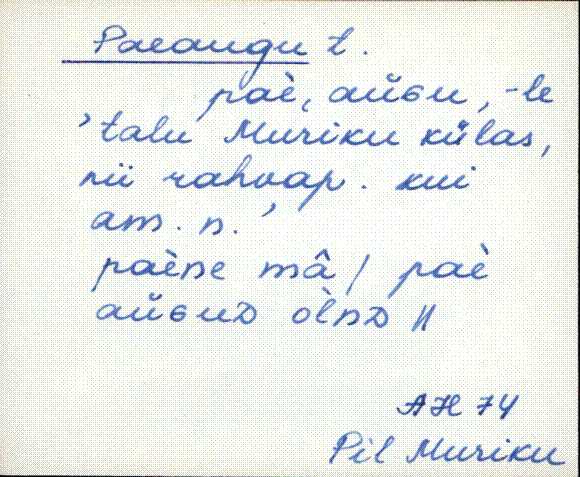 Paeaugu t.
paè, aŭɢu, -le
'talu Muriku külas,
nii rahvap. kui
am. n.'
paène mâ / paè
aŭɢuᴅ òlnᴅ //
AH 74
Pil Muriku